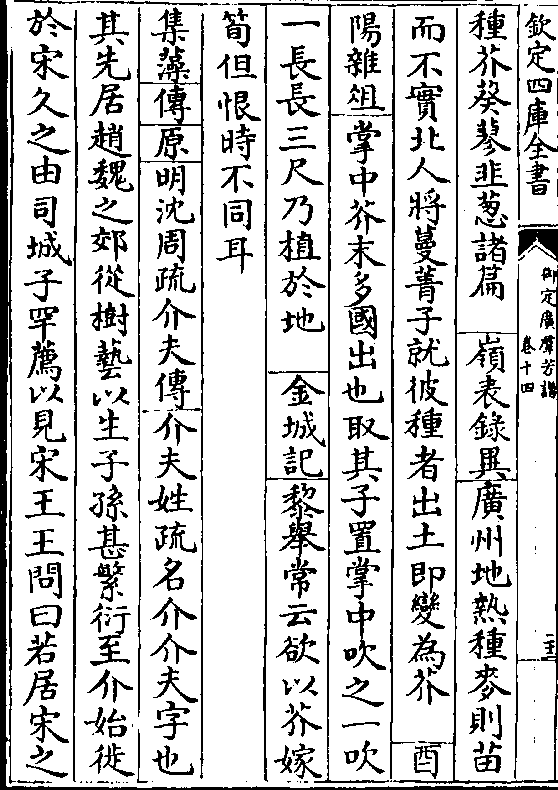 欽定四庫全書
御定廣羣芳譜
卷十四
種芥葵蓼韭葱諸篇　嶺表錄異廣州地熱種麥則苗
而不實北人將蔓菁子就彼種者出土即變為芥　酉
陽雜俎掌中芥末多國出也取其子置掌中吹之一吹
一長長三尺乃植於地　金城記黎舉常云欲以芥嫁
筍但恨時不同耳
集藻傳原明沈周疏介夫傳介夫姓疏名介介夫字也
其先居趙魏之郊從樹藝以生子孫甚繁衍至介始徙
於宋久之由司城子罕薦以見宋王王問曰若居宋之